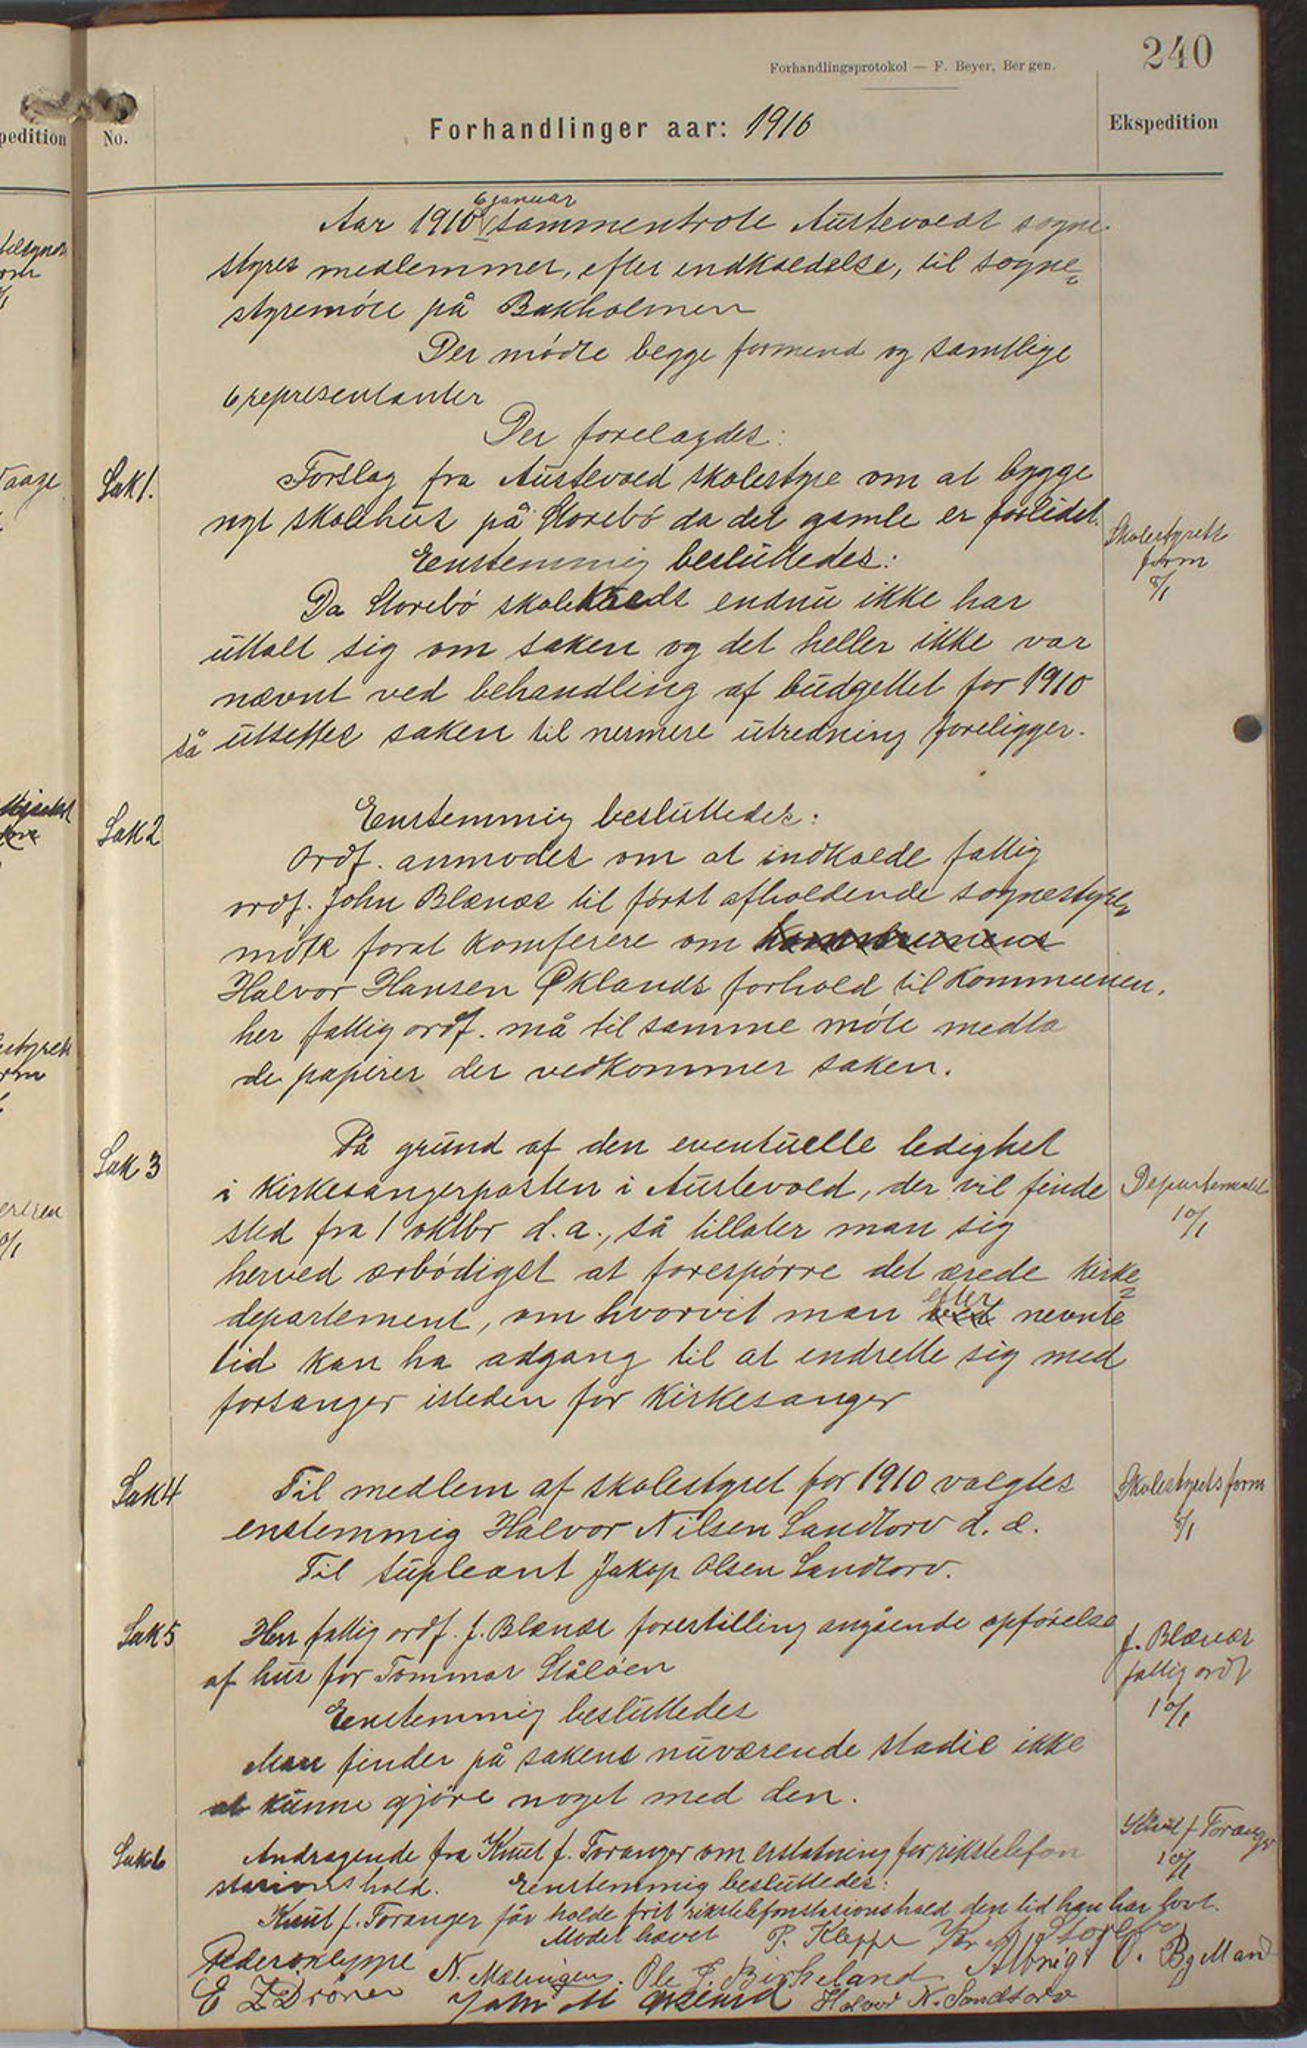 240
Forhandlingsprotokol — F. Beyer, Bergen.
pedition No. Forhandlinger aar: 1910 Ekspedition
6 januar
Aar 1910 sammentrote Austevolds sogne-
styres medlemmer, efter indkaldelse, til sogne=
styremöte på Bakholmen
Der mödte begge formend og samtlige
6 representanter
Der forelagdes:
Sak 1. Forslag fra Austevold skolestyre om at bygge
nyt skolehus på Storebö da det gamle er forlidet.
Skolestyrets
form
8/1
Eenstemmig besluttedes:
Da Storebö skolekreds endnu ikke har
uttalt sig om saken og det heller ikke var
nævnt ved behandling af budgettet for 1910
så utsettes saken til nermere utredning foreligger.
Sak 2 Eenstemmig besluttedes:
Ordf. anmodes om at indkalde fattig
ordf. John Blænes til först afholdende sognestyre=
möte forat komferere om
Halvor Hansen Öklands forhold til kommunen.
her fattig ordf. må til samme möte medta
de papirer der vedkommer saken.
Sak 3 På grund af den eventuelle ledighet
i kirkesangerposten i Austevold, der vil finde
Departementet
10/1
sted fra 1 oktbr d.a., så tillater man sig
herved ærbödigst at forespörre det ærede kirke=
departement, om hvorvit man ved efter nevnte
tid kan ha adgang til at endrette sig med
forsanger isteden for kirkesanger
Sak 4 Til medlem af skolestyret for 1910 valgtes
Skolestyrets form
8/1
enstemmig Halvor Nilsen Sandtorv d.æ.
Til supleant Jakop Olsen Sandtorv.
Sak 5 Herr fattig ordf. J. Blænes forestilling angående opförelse
af hus for Tommas Stålöen
J. Blænes
fattig ordf
10/1
Eenstemmig besluttedes
Man finder på sakens nuværende stadie ikke
at kunne gjöre noget med den.
Sak 6 Andragende fra Knut J. Toranger om erstatning for rikstelefon
stasionshold. Eenstemmig besluttedes:
Knut J. Toranger
10/1
Knut J. Toranger får holde frit rikstelefonstasionshold den tid han har lovt.
Mödet hævet P. Kleppe
Peder Kleppe N. Mælingen. Ole J. Birkeland Albrigt O. Bg Mand
E Z Drönen John M Halvor N. Sandtorv